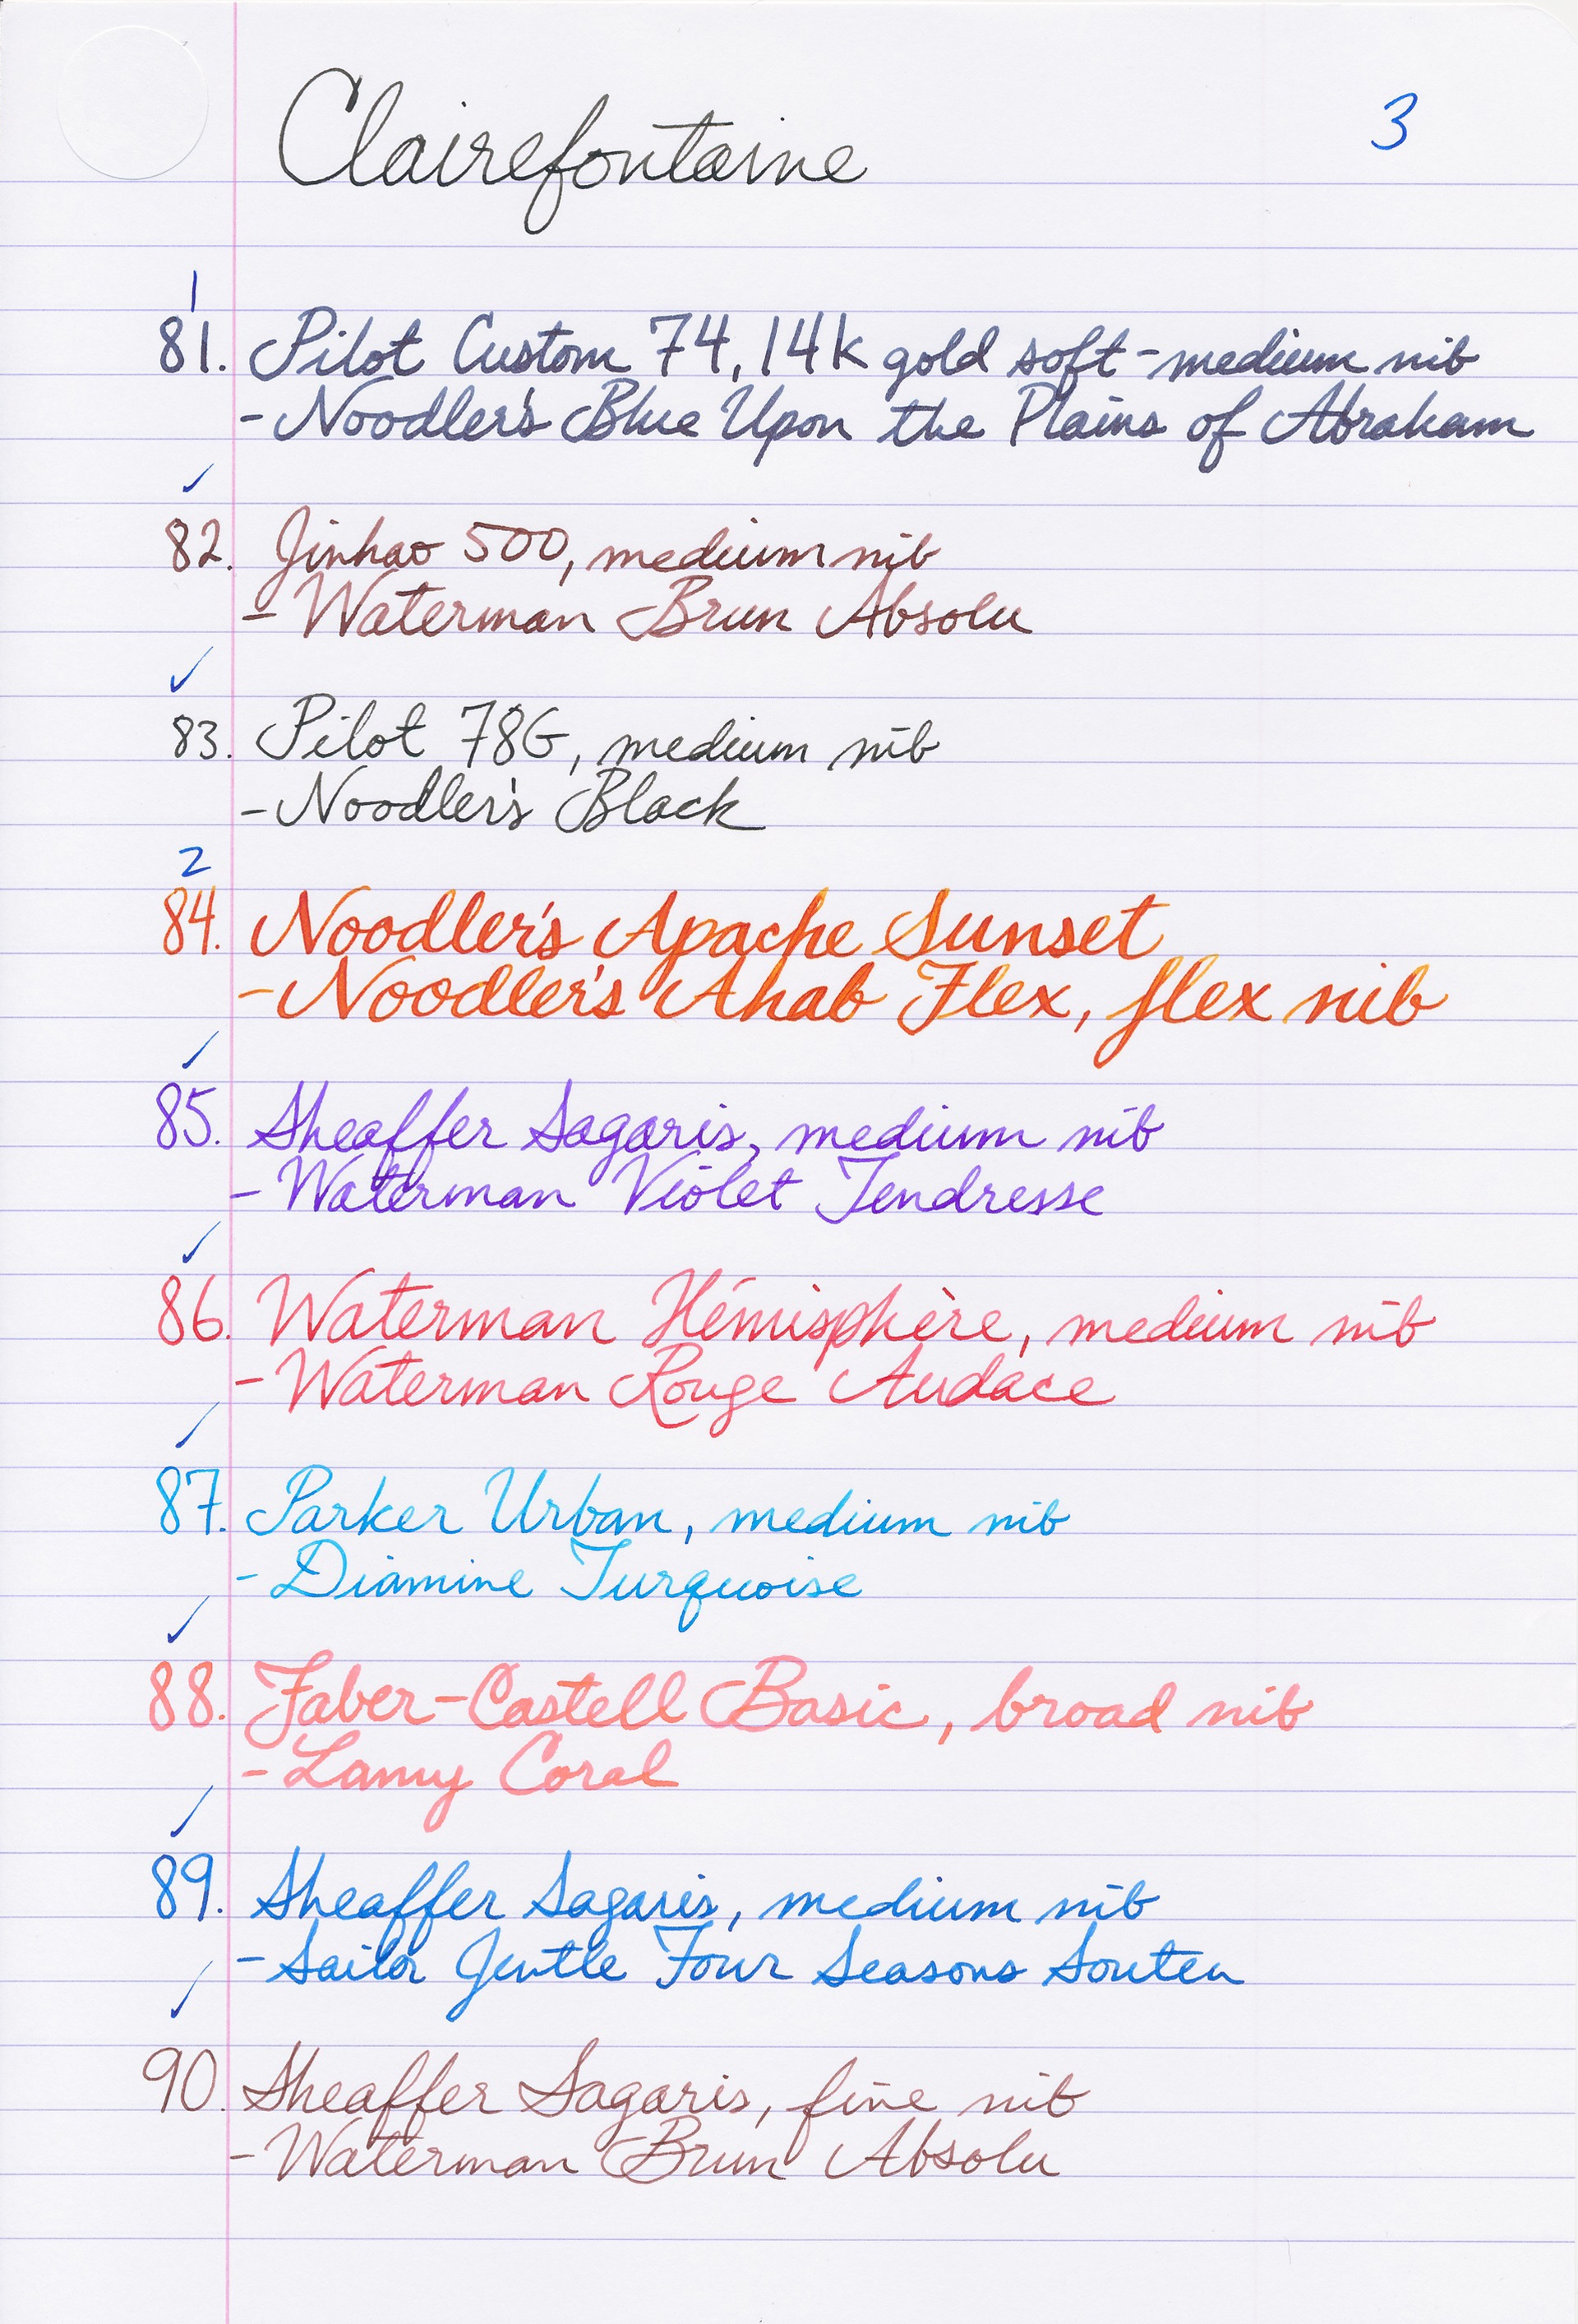 Clairefontaine
3
1
81. Pilot Custom 74, 14k gold soft-medium nib
- Noodler's Blue Upon the Plains of Abraham
✓
82. Jinhao 500, medium nib
- Waterman Brun Absolu
✓
83. Pilot 78G, medium nib
- Noodler's Black
2
84. Noodler's Apache Sunset
- Noodler's Ahab Flex, flex nib
✓
85. Sheaffer Sagaris, medium nib
- Waterman Violet Tendresse
✓
86. Waterman Hémisphère, medium nib
- Waterman Rouge Audace
✓
87. Parker Urban, medium nib
- Diamine Turquoise
✓
88. Faber-Castell Basic, broad nib
- Lamy Coral
✓
89. Sheaffer Sagaris, medium nib
- Sailor Jentle Four Seasons Souten
✓
90. Sheaffer Sagaris, fine nib
- Waterman Brun Absolu